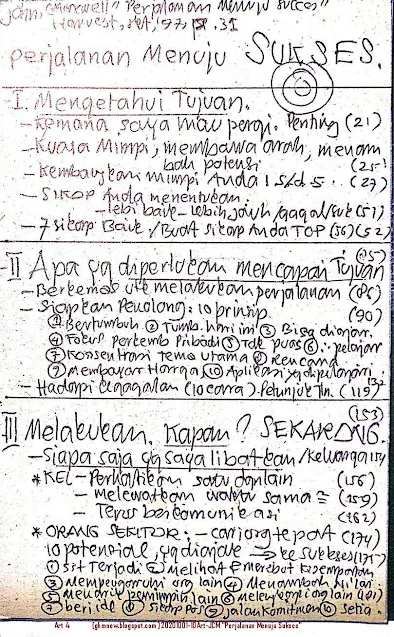 John Maxwell "Perjalanan Menuju Sucses"
Harvest, 
Perjalanan Menuju SUKSES.
I. Mengetahui Tujuan.
- Kemana saya mau pergi. Penting (21)
- Kuasa Mimpi, membawa arah, menam
bah potensi (25)
- Kembangkan mimpi Anda! S/d 5.. (27)
- Sikap Anda menentukan.
- lebi baik - lebih jauh/gagal/suk (51)
- 7 sikap Baik, /Buat sikap Anda TOP (56) (52)
II Apa yg diperlukan mencapai Tujuan
- Berkemas utk melakukan perjalanan (85)
- Siapkan Penolong: 10 prinsip (90)
① Bertumbuh ② Tumb. hari ini ③ Bisa diajar.
④ Fokus perkemb Pribadi ⑤ Tdk puas ⑥ pelajar
⑦ Konsentrasi tema utama ⑧ Rencana
⑨ Membayar Harga ⑩ Aplikasi yg dipelajari
- Hadapi kegagalan (10 cara). Petunjuk Tm. (119)
(153)
III Melakukan. Kapan? SEKARANG.
- Siapa saja yg saya libatkan/keluarga 154
* KEL - Perhatikan satu dg lain (156)
- Melewatkan waktu sama = (159)
- Terus berkomunikasi (162)
* ORANG SEKITOR: - cari org tepat (174)
10 potensial, yg diajak ⇒ ke sukses (175)
① Sst Terjadi ② Melihat & merebut kesempatan
③ Mempengaruhi org lain ④ Menambah nilai
⑤ Menarik pemimpin lain ⑥ Melengkapi org lain (181)
⑦ beri ide ⑧ Sikap pos ⑨ jalan komitmen ⑩ Setia.
Art 4 (ghmnew.blogspot.com) 20201001-10Art-JCM "Perjalanan Menuju Sukses"